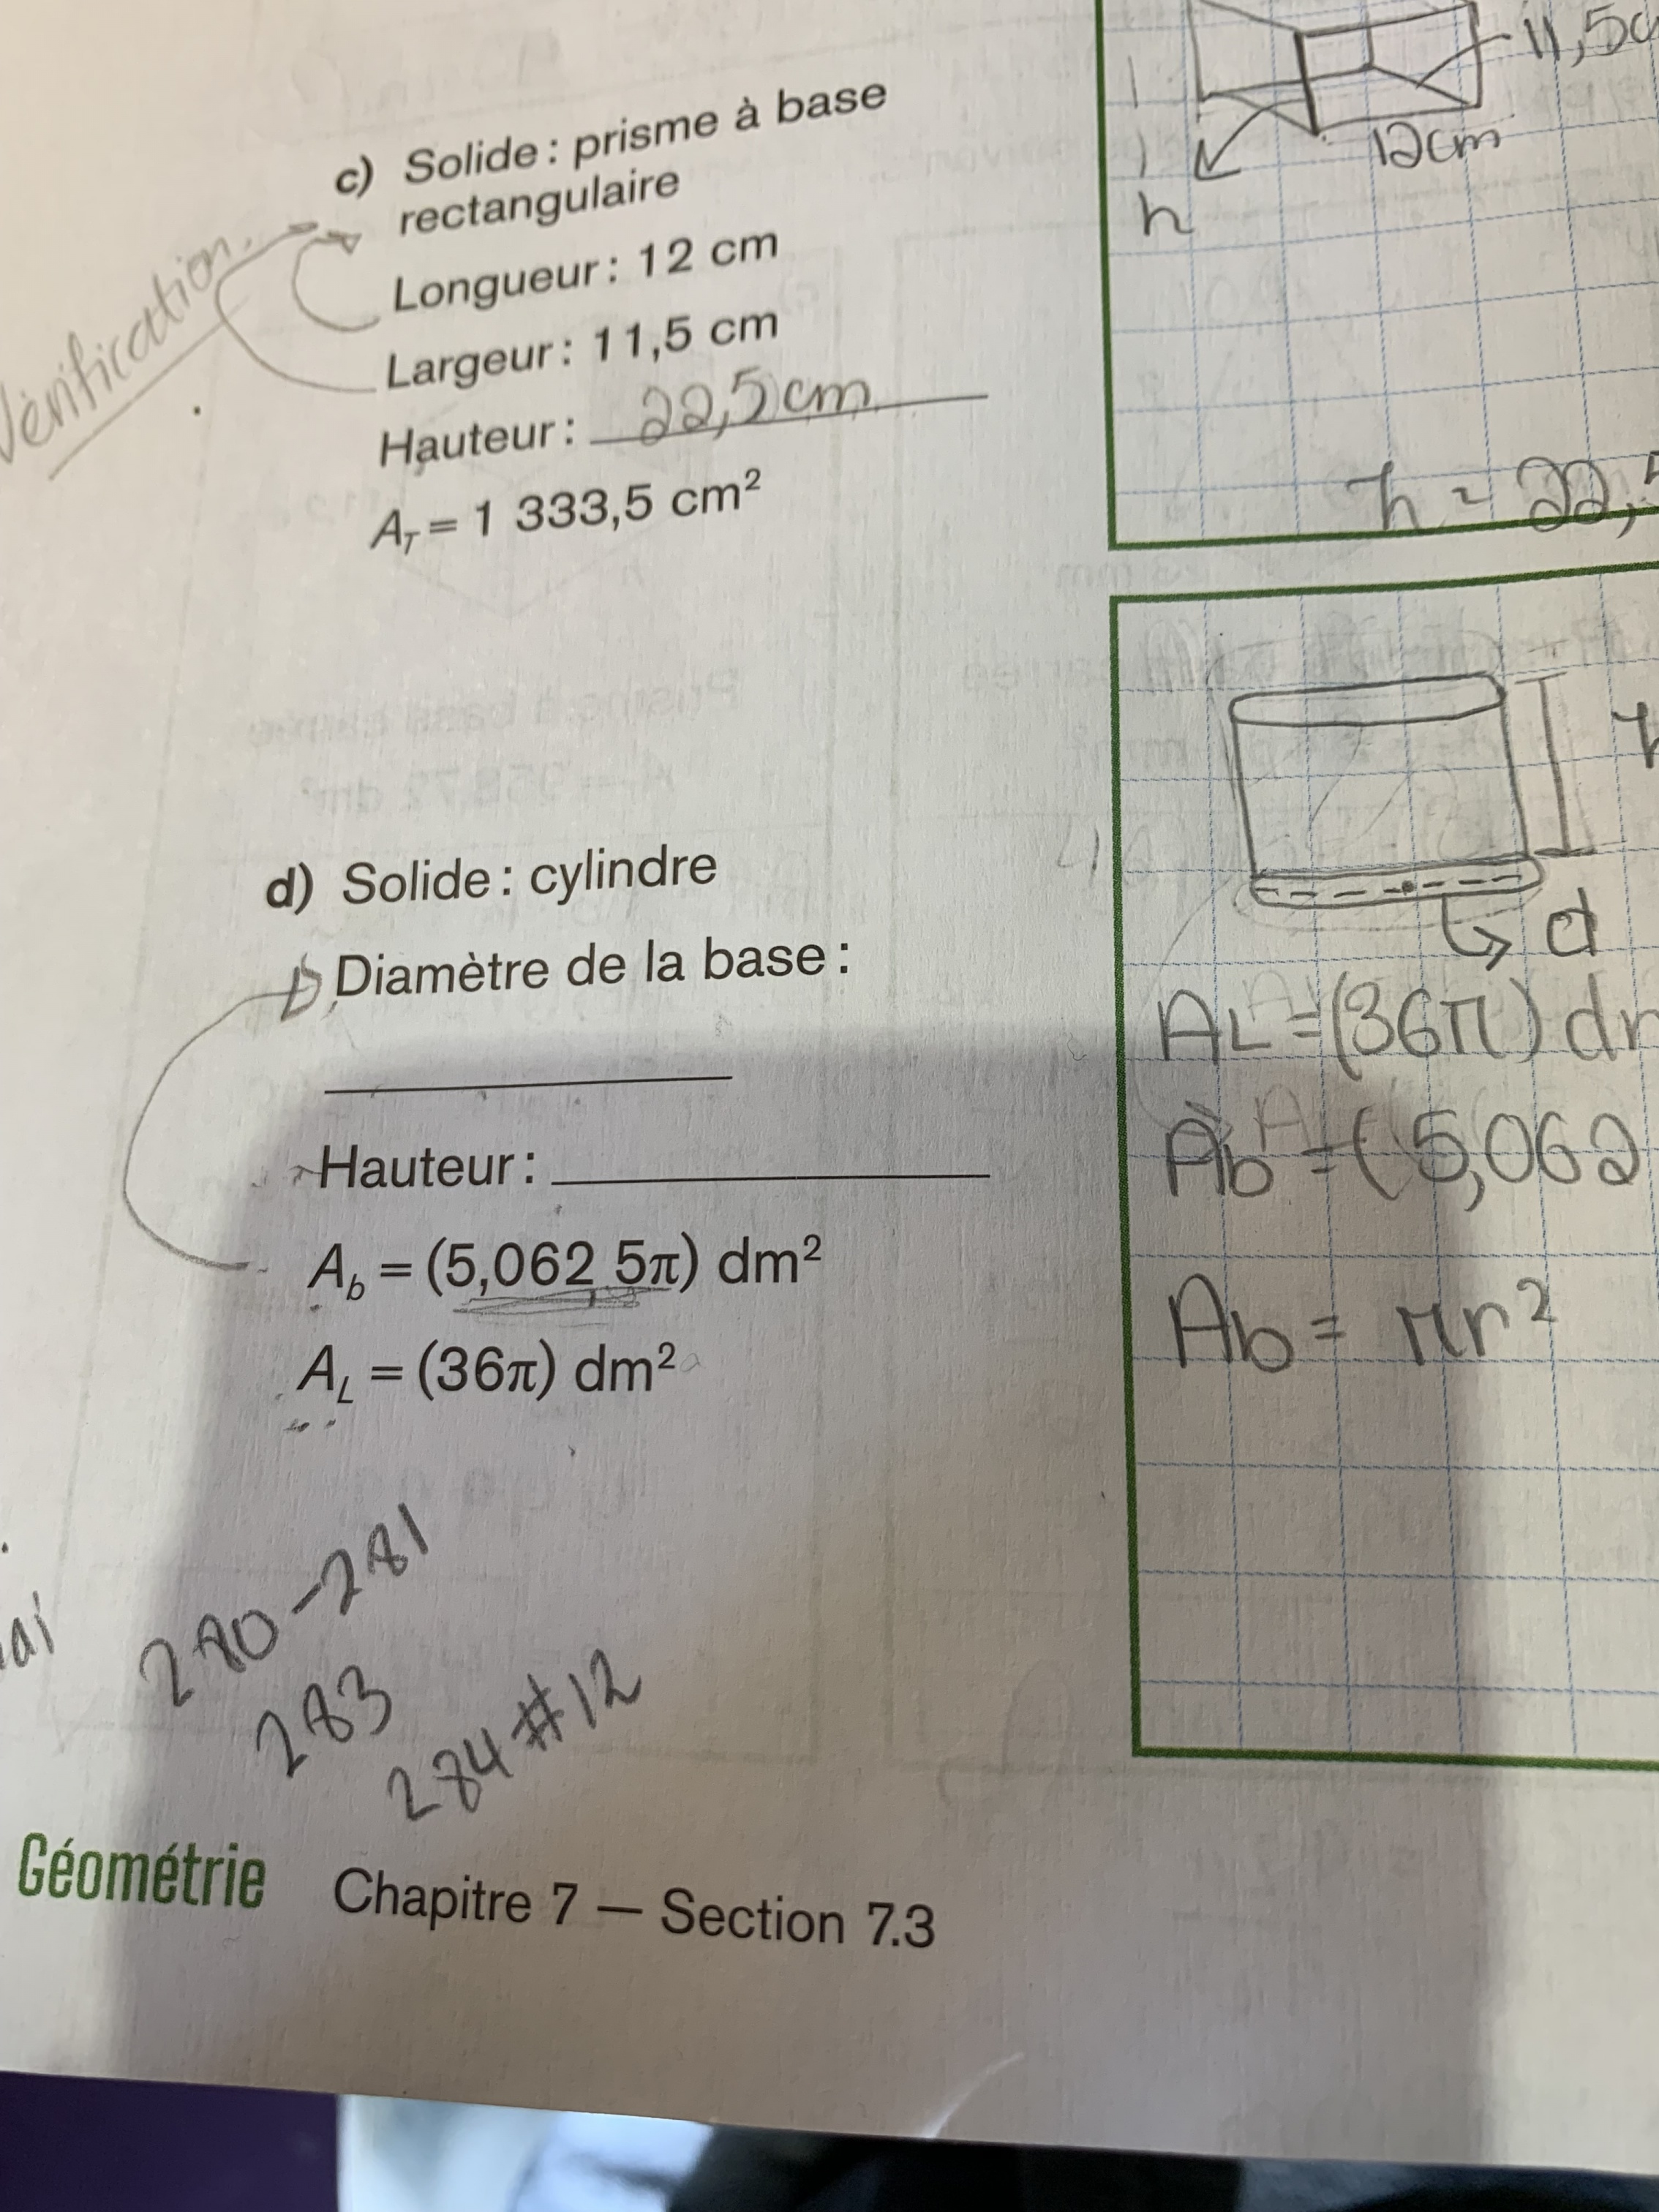 c) Solide : prisme à base
rectangulaire
Vérification.
Longueur : 12 cm
Largeur : 11,5 cm
Hauteur : 22,5 cm
A_T = 1 333,5 cm²
11,5c
12cm
h
h = 22,5
d) Solide : cylindre
Diamètre de la base :
Hauteur :
A_b = (5,062 5π) dm²
A_L = (36π) dm²
h
d
AL = (36π) dm
Ab = (5,062
Ab = πr²
280-281
283
284 #12
Géométrie Chapitre 7 — Section 7.3